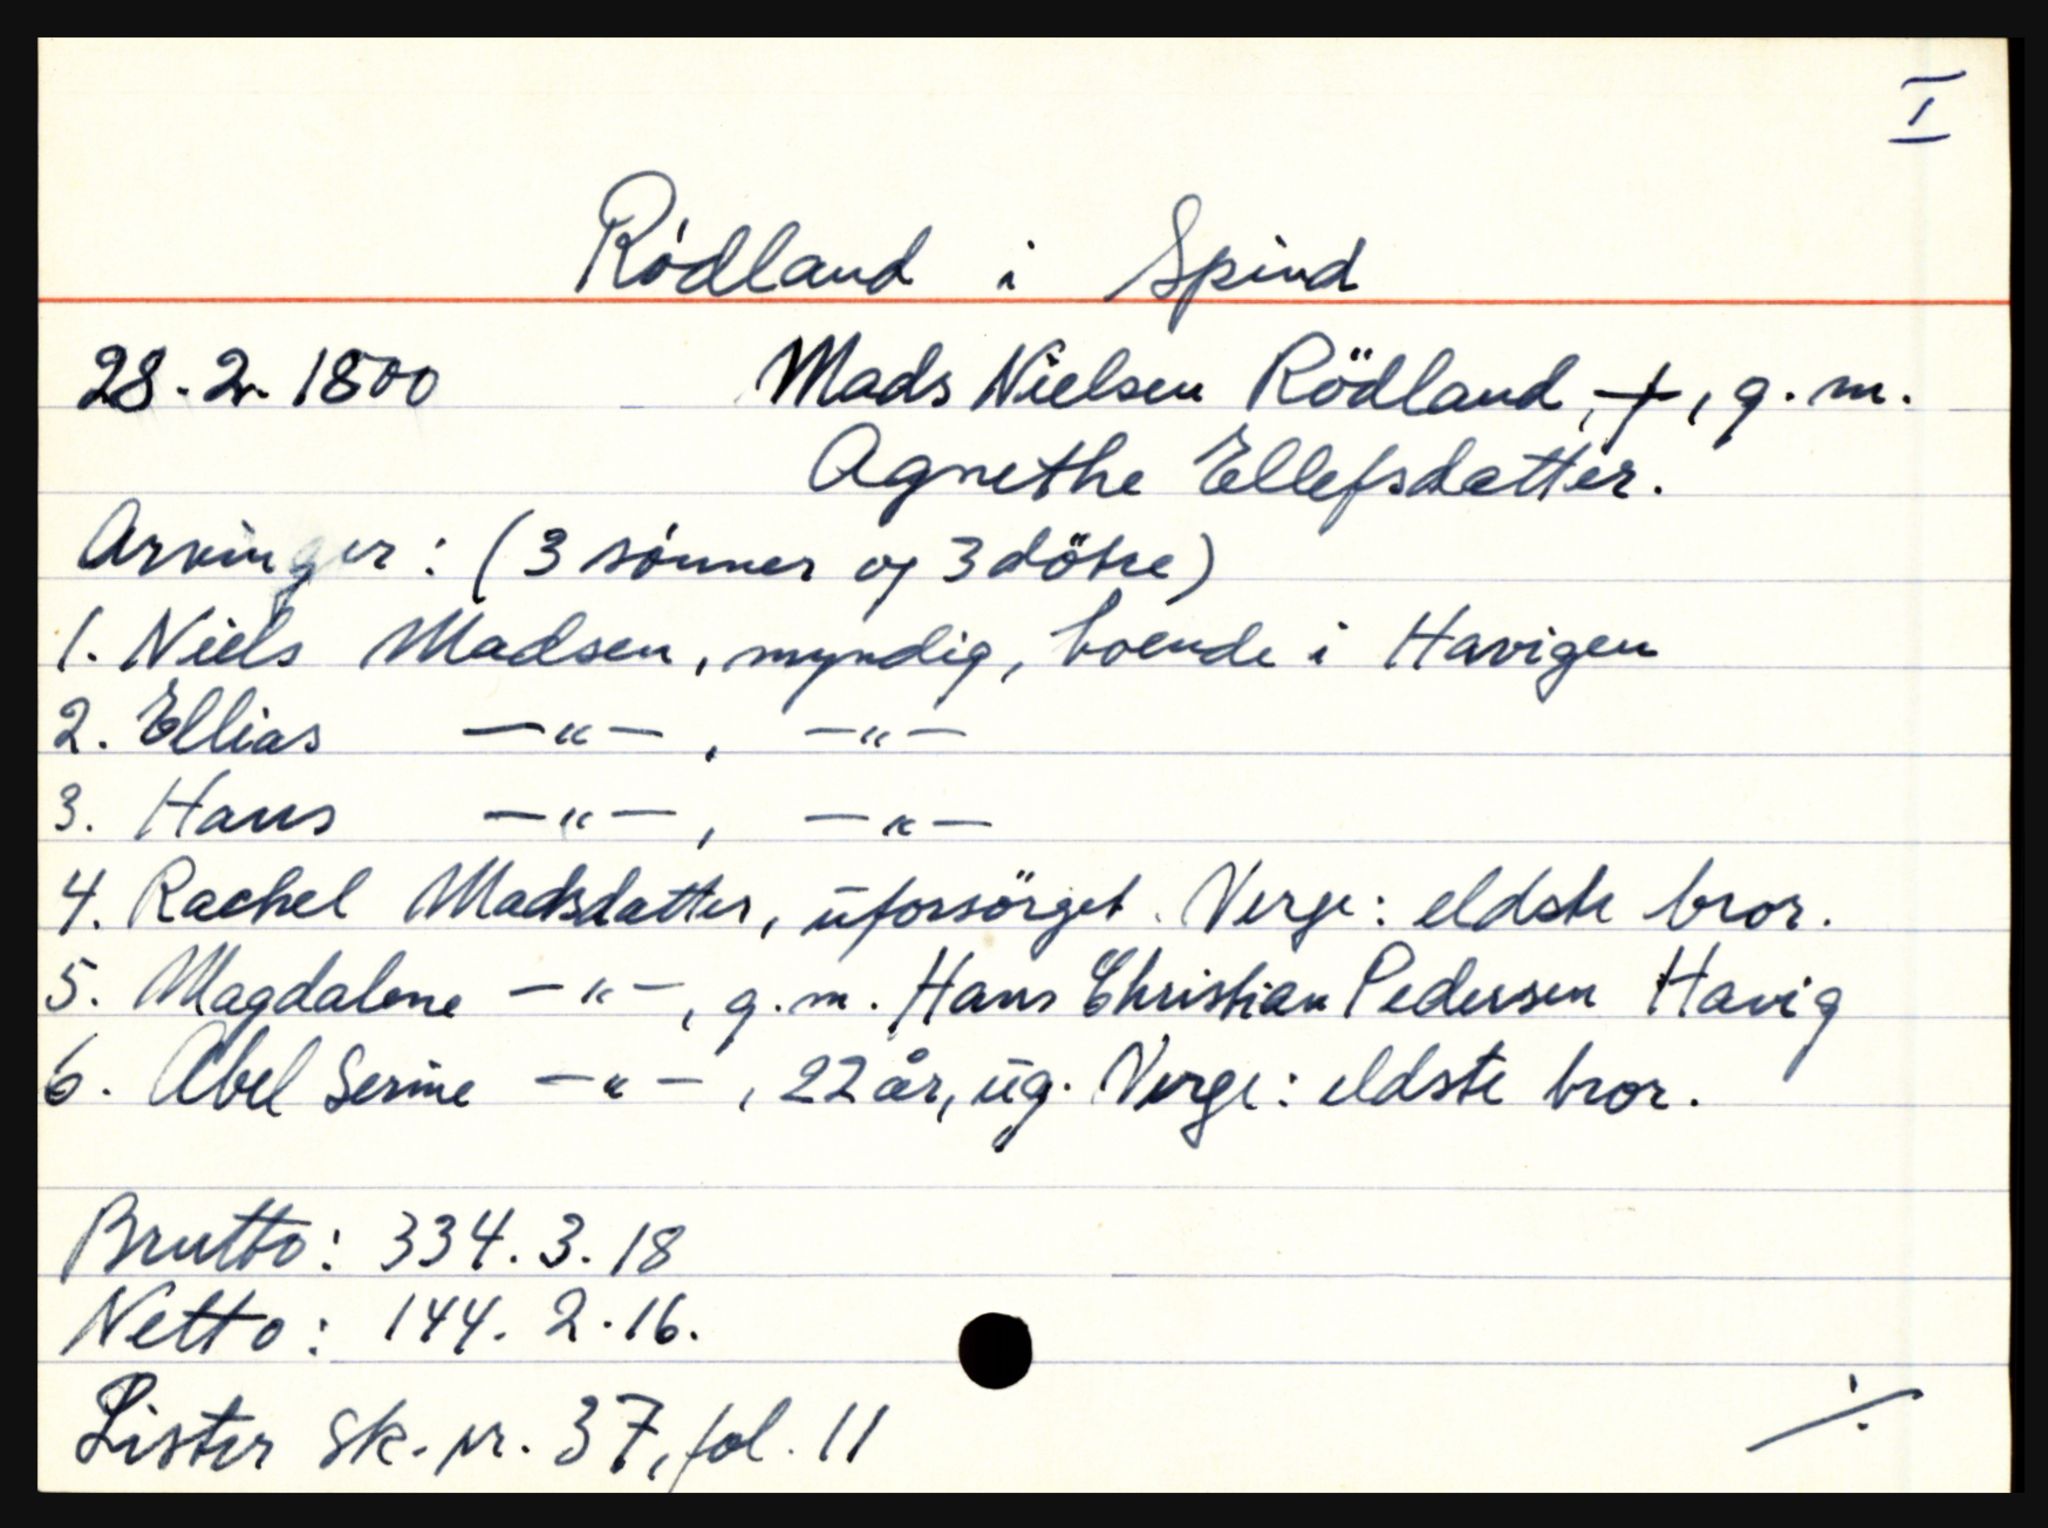 I
Ródland i Spind
28.2. 1800 Mads Nielsen Rödland, +, g. m.
Agnethe Ellefsdatter.
Arvinger: (3 sónner og 3 dötre)
1. Niels Madsen, myndig, boende i Havigen
2. Ellias —"—, —"—
3. Hans —"—, —"—
4. Rachel Madsdatter, uforsörget. Verge: eldste bror.
5. Magdalene —"—, g. m. Hans Christian Pedersen Havig
6. Abel Serine —"—, 22 år, ug. Verge: eldste bror.
Brutto: 334. 3. 18
Netto: 144. 2. 16.
Lister sk. pr. 37, fol. 11
·/·